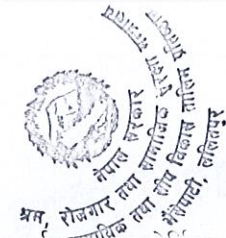 नेपाल सरकार
श्रम, रोजगार तथा सामाजिक सुरक्षा मन्त्रालय
तथा सीप विकास तालिम प्रतिष्ठान
भैंसेपाटी, ललितपुर